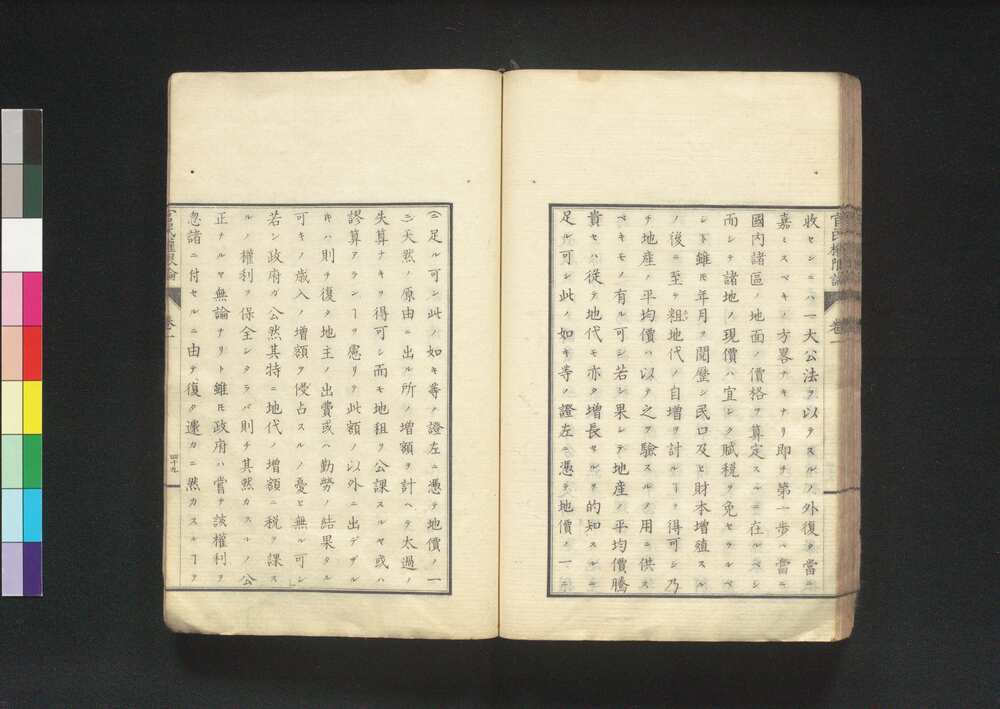 官民權限論
卷一
收セシニハ一大公法ヲ以テスルノ外復タ當ニ
嘉ミスベキノ方畧ナキナリ即チ第一歩ハ當ニ
國内諸區ノ地面ノ價格ヲ算定スルニ在ルベシ
而シテ諸地ノ現價ハ宜シク賦税ヲ免セラルベ
シト雖𪜈年月ヲ閲歴シ民口及ヒ財本增殖スル
ノ後ニ至テ粗地代ノ自增ヲ計ルヿヲ得可シ乃
チ地産ノ平均價ハ以テ之ヲ驗スルノ用ニ供ス
ベキモノ有ル可シ若シ果シテ地産ノ平均價騰
貴セハ從テ地代モ亦タ增長セルヲ的知スルニ
足ル可シ此ノ如キ等ノ證左ニ憑テ地價ノ一
ニ足ル可シ此ノ如キ等ノ證左ニ憑テ地價ノ一
ニ天然ノ原由ニ出ル所ノ增額ヲ計ヘテ太過ノ
失算ナキヲ得可シ而モ地租ヲ公課スルヤ或ハ
謬算アランヿヲ慮リテ此額ノ以外ニ出デザル
𪜈ハ則チ復タ地主ノ出費或ハ勤勞ノ結果タル
可キノ歳入ノ增額ヲ侵占スルノ憂ヒ無ル可シ
若シ政府ガ公然其特ニ地代ノ增額ニ税ヲ課ス
ルノ權利ヲ保全シタラバ則チ其然カスルノ公
正ナルヤ無論ナリト雖𪜈政府ハ嘗テ該權利ヲ
忽諸ニ付セルニ由テ復タ遽カニ然カスルヿヲ
官民權限論
卷一
四十九